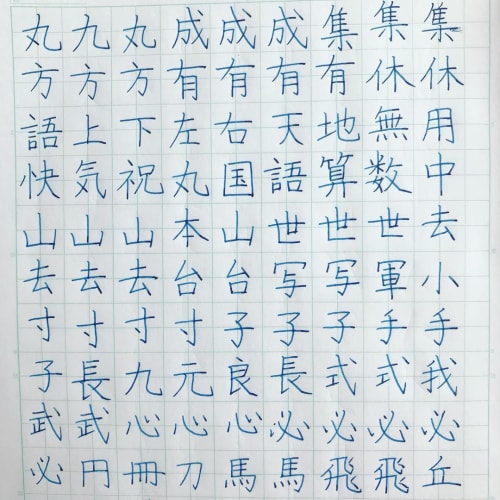 丸九丸成成成集集集
方方方有有有有休休
語上下左右天地無用
快気祝丸国語算数中
山山山本山世世世去
去去去台台写写軍小
寸寸寸寸子子子手手
子長九元良長式式我
武武心心心必必必必
必円冊刀馬馬飛飛丘